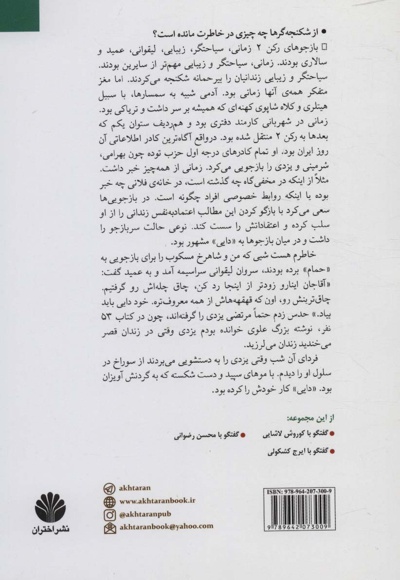 ● از شکنجه‌گرها چه چیزی در خاطرت مانده است؟
□ بازجوهای رکن ۲ زمانی، سیاحتگر، زیبایی، لیقوانی، عمید و
سالاری بودند. زمانی، سیاحتگر و زیبایی مهم‌تر از سایرین بودند.
سیاحتگر و زیبایی زندانیان را بیرحمانه شکنجه می‌کردند. اما مغز
متفکر همه‌ی آنها زمانی بود. آدمی شبیه به سمسارها، با سبیل
هیتلری و کلاه شاپوی کهنه‌ای که همیشه بر سر داشت و تریاکی بود.
زمانی در شهربانی کارمند دفتری بود و هم‌ردیف ستوان یکم که
بعدها به رکن ۲ منتقل شده بود. درواقع آگاه‌ترین کادر اطلاعاتی آن
روز ایران بود. او تمام کادرهای درجه اول حزب توده چون بهرامی،
شرمینی و یزدی را بازجویی می‌کرد. زمانی از همه‌چیز خبر داشت.
مثلاً از اینکه در مخفی‌گاه چه گذشته است، در خانه‌ی فلانی چه خبر
بوده یا اینکه روابط خصوصی افراد چگونه است. در بازجویی‌ها
سعی می‌کرد با بازگو کردن این مطالب اعتمادبه‌نفس زندانی را از او
سلب کرده و اعتقاداتش را سست کند. نوعی حالت سربازجو را
داشت و در میان بازجوها به «دایی» مشهور بود.
خاطرم هست شبی که من و شاهرخ مسکوب را برای بازجویی به
«حمام» برده بودند، سروان لیقوانی سراسیمه آمد و به عمید گفت:
«آقاجان اینارو زودتر از اینجا رد کن، چاق چله‌اش رو گرفتیم.
چاق‌ترینش رو، اون که قهقهه‌هاش از همه معروف‌تره. خود دایی باید
بیاد.» حدس زدم حتماً مرتضی یزدی را گرفته‌اند، چون در کتاب ۵۳
نفر، نوشته بزرگ علوی خوانده بودم یزدی وقتی در زندان قصر
می‌خندید زندان می‌لرزید.
فردای آن شب وقتی یزدی را به دستشویی می‌بردند از سوراخ در
سلول او را دیدم. با موهای سپید و دست شکسته که به گردنش آویزان
بود. «دایی» کار خودش را کرده بود.
از این مجموعه:
● گفتگو با کوروش لاشایی
● گفتگو با محسن رضوانی
گفتگو با ایرج کشکولی
akhtaran
www.akhtaranbook.ir
@akhtaranpub
akhtaranbook@yahoo.com
ISBN: 978-964-207-300-9
9 789642 073009
نشر اختران